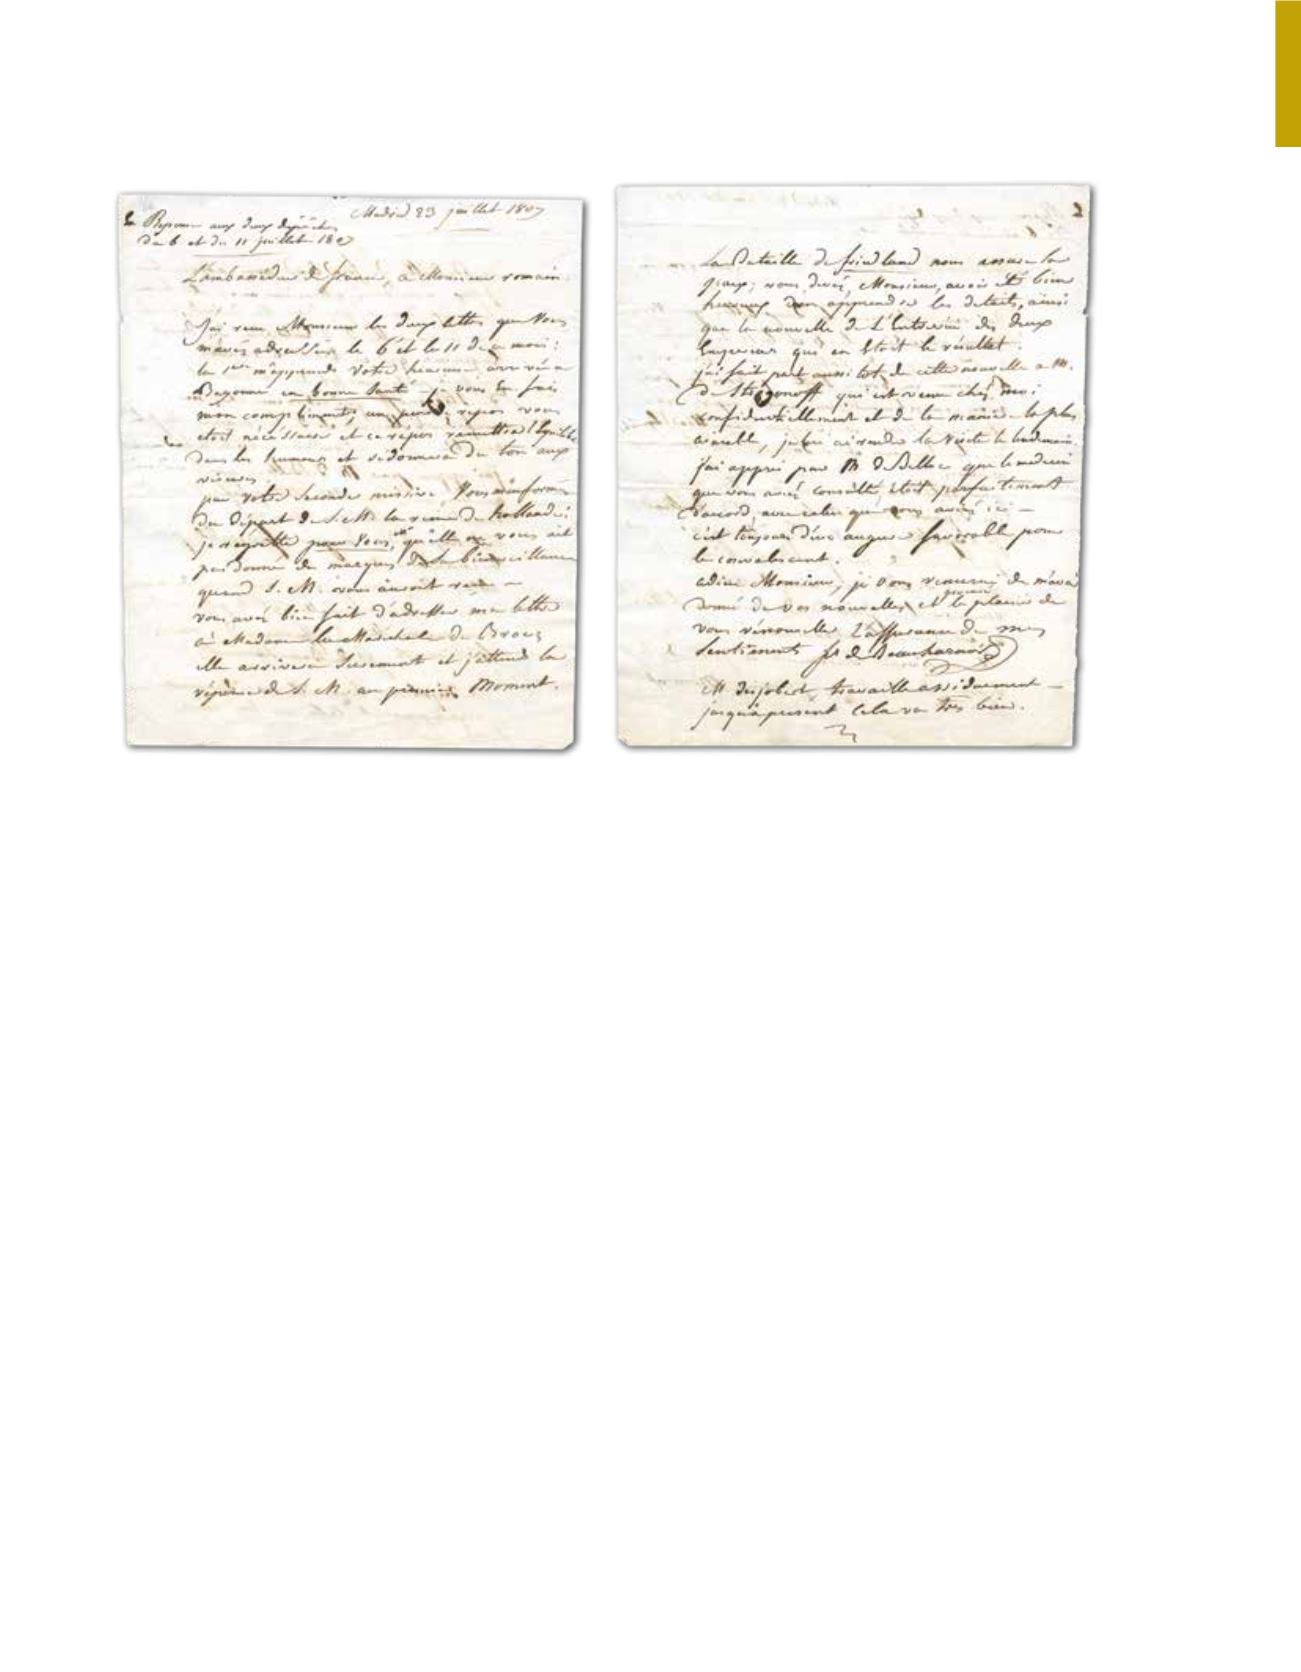 Madrid 23 juillet 1807
Reponse aux deux dépêches
du 6 et du 11 juillet 1807
L'ambassadeur de france, a Monsieur romain.
J'ai recu Monsieur les deux lettres que Vous
m'avés adressées le 6 et le 11 de ce mois:
la 1ere m'apprend votre heureuse arrivée a
Bayonne en bonne santé je vous en fais
mon compliment, un peu de repos vous
etoit nécéssaire et ce repos remettra l'équilibre
dans les humeurs et redonnera du ton aux
viscères.
par votre seconde missive Vous m'informés
du Départ de S. M. la reine de hollande:
je regrette pour Vous, qu'elle ne vous ait
pas donné de marques de la bienveillance
quand S. M. vous auroit vu
vous avés bien fait d'adresser ma lettre
à Madame la Marechale de Broc
elle arrivera surement et j'attend la
réponse de S. M. au premier Moment.
2
La Bataille de friedland nous assure la
paix; vous devés, Monsieur, avoir été bien
heureux d'en apprendre les details, ainsi
que la nouvelle de L'Entrevue des deux
Empereurs qui en Etoit le résultat.
j'ai fait part aussi tot de cette nouvelle a M.
de Strogonoff qui est venu chés moi
confidentiellement et de la maniere la plus
aimable, je lui ai rendu la visite le lendemain.
j'ai appris par M d Belloc que le medecin
que vous aviés consulté, étoit parfaitement
d'accord avec celui que vous aviés ici
c'est toujours d'un augure favorable pour
le convalescent.
adieu Monsieur, je vous remercie de m'avoir
donné de vos nouvelles, et le plaisir de
vous rénouveller L'assurance de mes
sentiments fs de Beauharnois
M desjobert travaille assiduement
jusqu'a present Cela va tres bien.